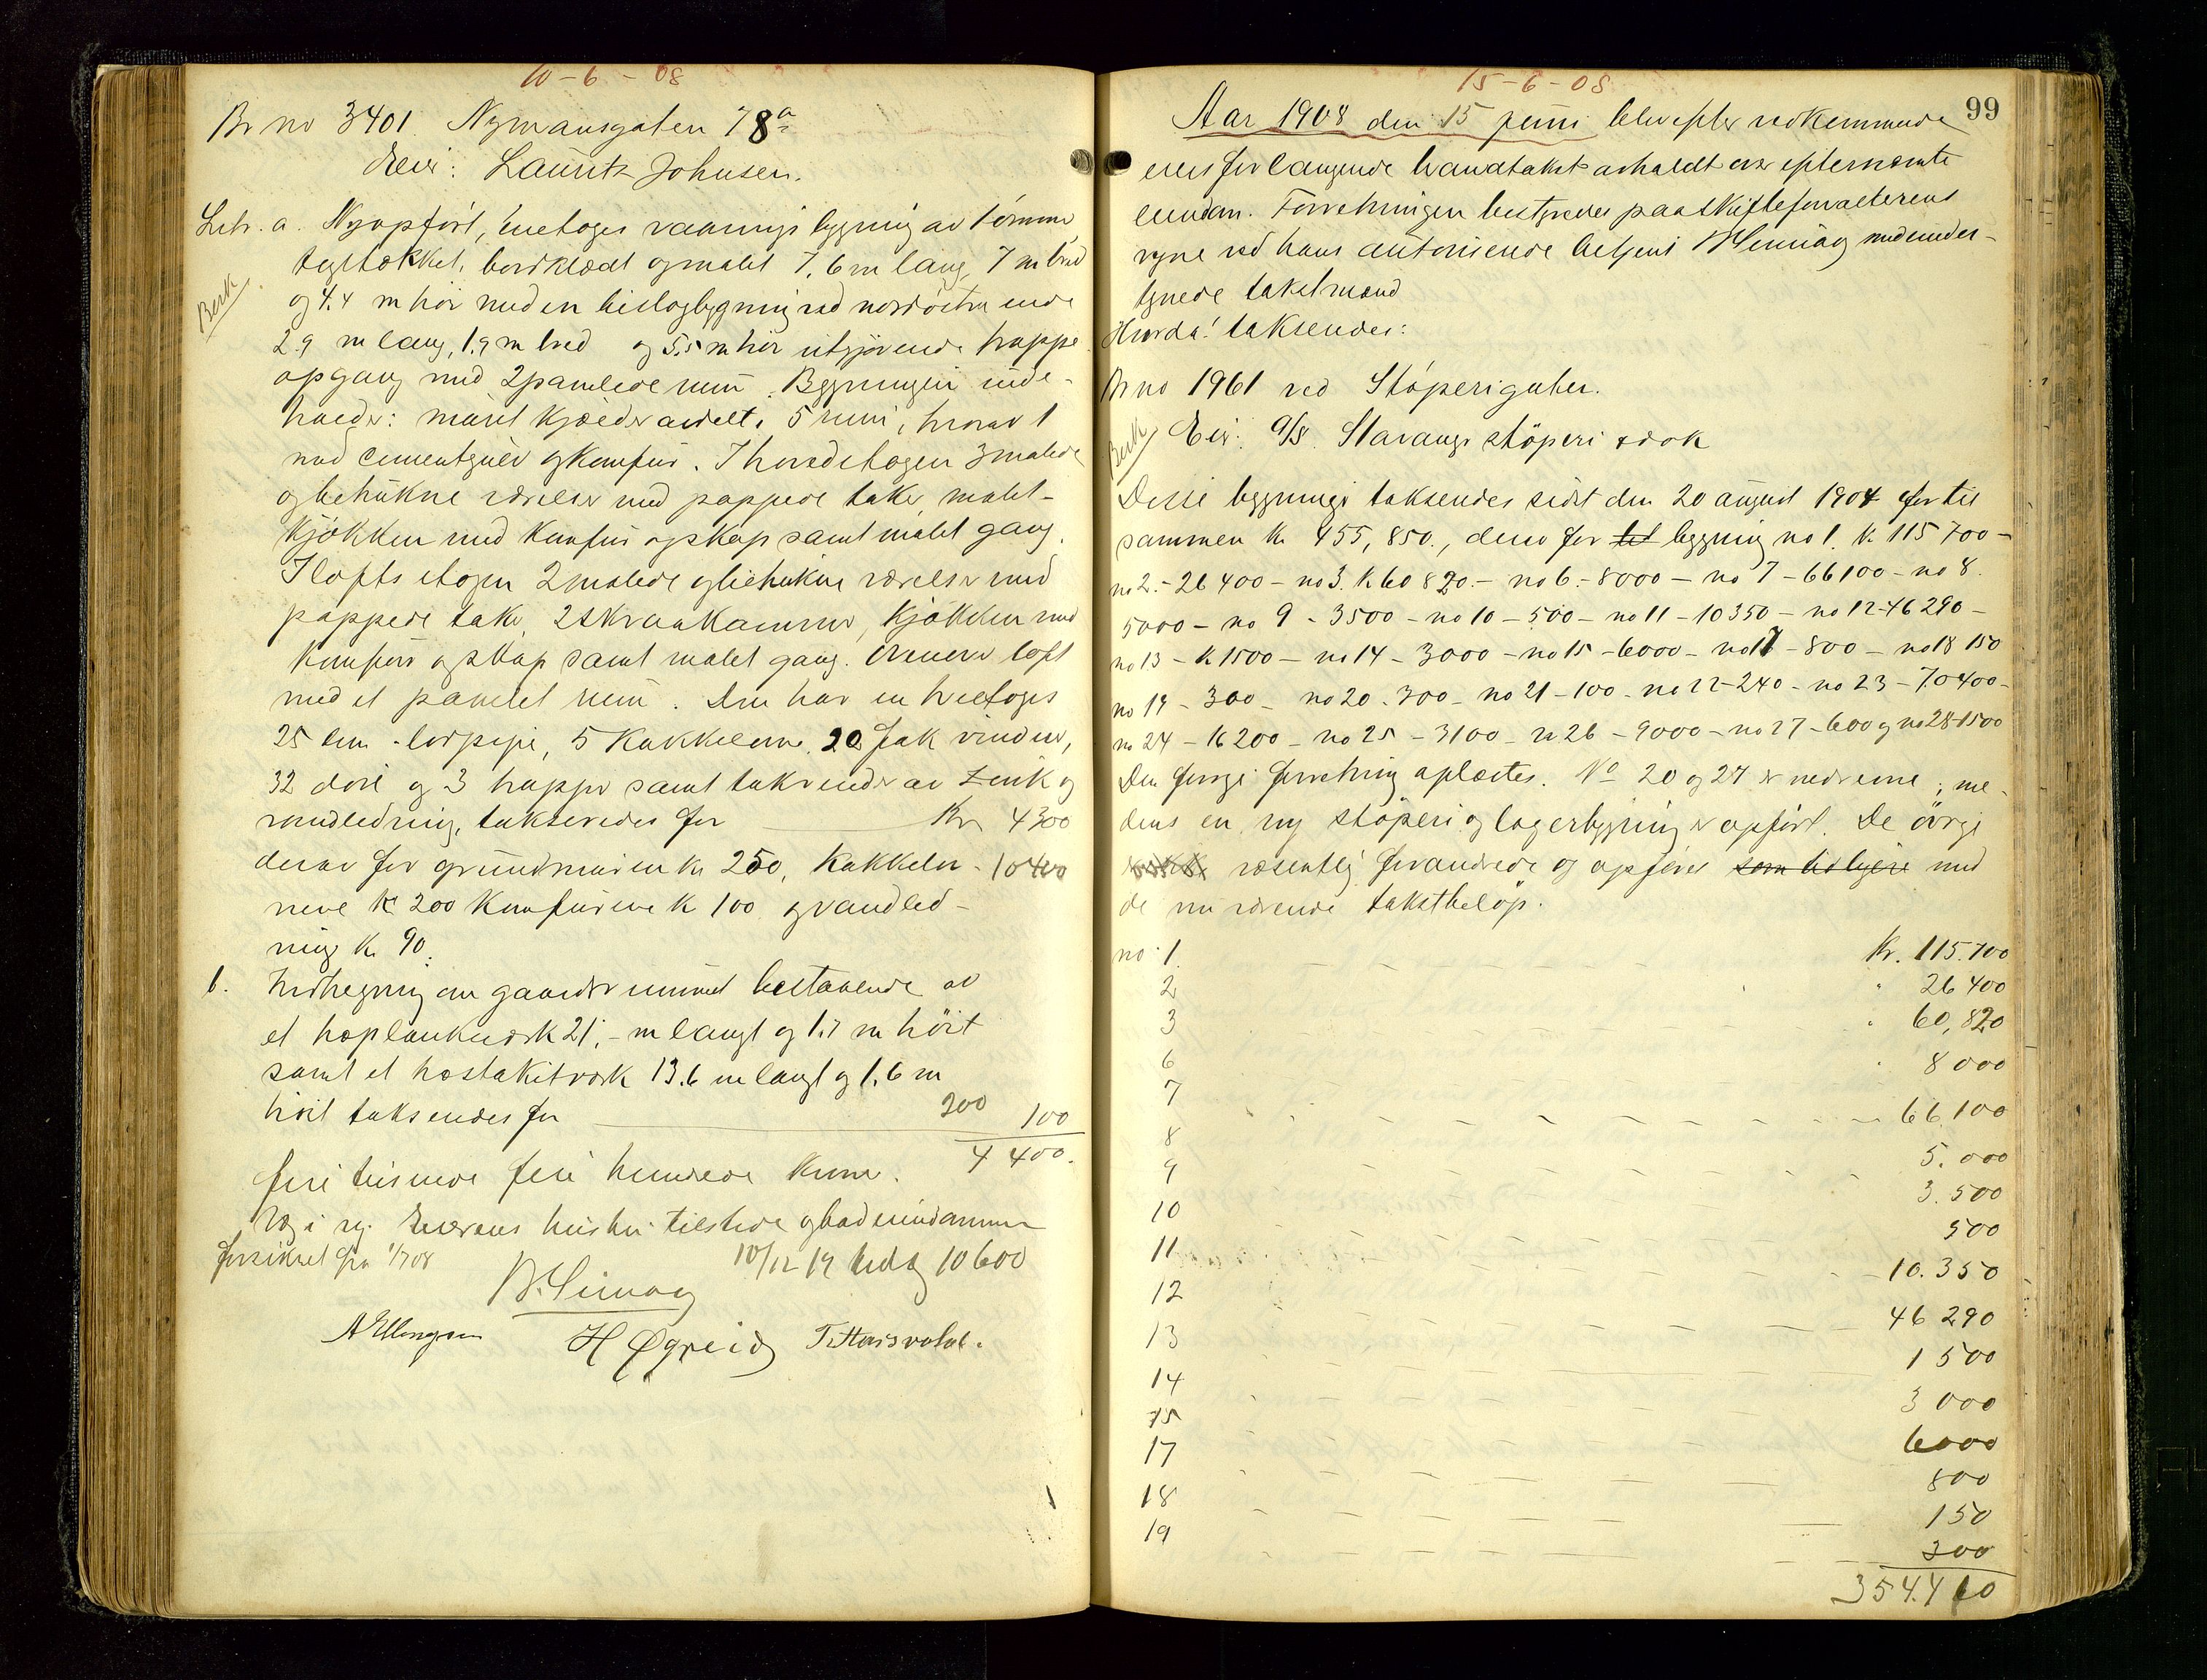 10-6-08
Br no 3401. Nymansgaten 78a
Eier: Lauritz Johnsen.
Litr. a. Nyopført, enetages vaanings bygning av tømmer
Besk
tegltækket, bordklædt og malet 7,6 m lang, 7 m bred
og 4.4 m høi med en bislagbygning ved nordøstre ende
2.9 m lang, 1.9 m bred og 5.5 m høi utgjørende trappe
opgang med 2 panelede rum. Bygningen inde-
holder: muret kjælder avdelt i 5 rum, hvorav 1
med cementgulv og komfur. I hovedetagen 3 malede
og betrukne værelser med pappede take, malet
kjøkken med komfur og skap samt malet gang.
I lofts etagen 2 malede og betrukne værelser med
pappede take, 2 skraakammer, kjøkken med
komfur og skap samt malet gang. Øverste loft
med et panelet rum. Den har en treetages
25 cm. lorpipe, 5 kakkelovne, 20 fak vinduer,
32 døre og 3 trapper samt takrender av zink og
vandledning, takseredes for Kr 4300
derav for grundmuren kr 250, kakkelov- 10400
nene kr 200 komfurene k 100 og vandled-
ning kr 90.
b. Indhegning om gaardsrummet bestaaende av
et træplankeværk 21,- m langt og 1.7 m høit
samt et træstakitværk 13.6 m langt og 1.6 m
høit takseredes for 200 100
4 400.
fire tusinde fire hundrede kroner.
forsikret fra 1/7 08
10/12 19 10600
H Øgreid
15-6-08
99
Aar 1908 den 15 juni blev efter vedkommende
eiers forlangende brandtakst avholdt over efternævnte
eiendom. Forretningen bestyredes paa skifteforvalterens
vegne ved hans autoriserede betjent med under-
tegnede takstmænd
Hvorda! takseredes:
Br no 1961 ved Støperigaten.
Besk
Eier: A/S. Stavanger støperi & dok
Disse bygninger takseredes sidst den 20 august 1904 for til
sammen kr 455,850., derav for bygning no 1. k 115 700 -
no 2.- 26 400 - no 3. k 60 820 - no 6.- 8000 - no 7 - 66100 - no 8.
5000 - no 9 - 3500 - no 10 - 500 - no 11 - 10350 - no 12 - 46290 -
no 13 - k 1500 - no 14 - 3000 - no 15 - 6000 - no 17 - 800 - no 18 150
no 19 - 300 - no 20 - 300 - no 21 - 100 - no 22 - 240 - no 23 - 70400 -
no 24 - 16200 - no 25 - 3100 - no 26 - 9000 - no 27 - 600 og no 28 - 1500
Den forrige forretning oplæstes. No 20 og 27 er nedrevne, me-
dens en ny støperi og lagerbygning er opført. De øvrige
væsentlig forandrede og opføres som tidligere med
de nu værende takstbeløp.
no 1. Kr. 115.700
2 " 26 400
3 " 60,820
6 " 8 000
7 66,100
8 5.000
9 3.500
10 500
11 10.350
12 46 290
13 1 500
14 3 000
15 6000
17 800
18 150
19 300
354.410